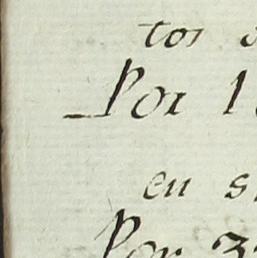 tos
Por 1
en s
Por 3